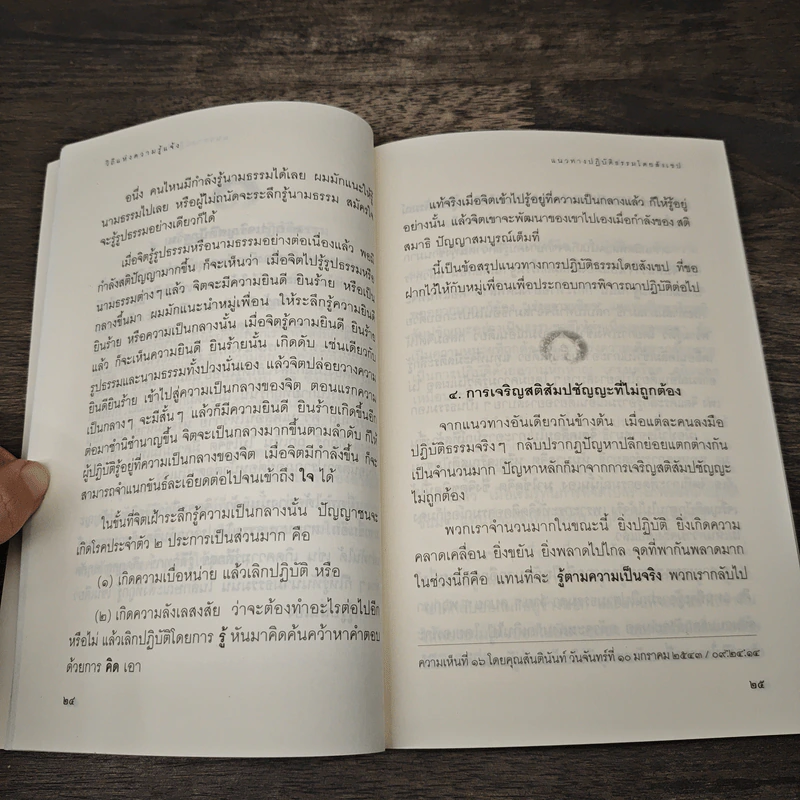 วิถีแห่งความรู้แจ้ง
อนึ่ง คนไหนมีกำลังรู้นามธรรมได้เลย ผมมักแนะให้รู้
นามธรรมไปเลย หรือผู้ไม่ถนัดจะระลึกรู้นามธรรม สมัครใจ
จะรู้รูปธรรมอย่างเดียวก็ได้
เมื่อจิตรู้รูปธรรมหรือนามธรรมอย่างต่อเนื่องแล้ว พอมี
กำลังสติปัญญามากขึ้น ก็จะเห็นว่า เมื่อจิตไปรู้รูปธรรมหรือ
นามธรรมต่างๆ แล้ว จิตจะมีความยินดี ยินร้าย หรือเป็น
กลางขึ้นมา ผมมักแนะนำหมู่เพื่อน ให้ระลึกรู้ความยินดี
ยินร้าย หรือความเป็นกลางนั้น เมื่อจิตรู้ความยินดี ยินร้าย
แล้ว ก็จะเห็นความยินดี ยินร้ายนั้น เกิดดับ เช่นเดียวกับ
รูปธรรมและนามธรรมทั้งปวงนั่นเอง แล้วจิตปล่อยวางความ
ยินดียินร้าย เข้าไปสู่ความเป็นกลางของจิต ตอนแรกความ
เป็นกลางๆ จะมีสั้นๆ แล้วก็มีความยินดี ยินร้ายเกิดขึ้นอีก
ต่อมาชำนิชำนาญขึ้น จิตจะเป็นกลางมากขึ้นตามลำดับ ก็ให้
ผู้ปฏิบัติรู้อยู่ที่ความเป็นกลางของจิต เมื่อจิตมีกำลังขึ้น ก็จะ
สามารถจำแนกขันธ์ละเอียดต่อไปจนเข้าถึง ใจ ได้
ในขั้นที่จิตเฝ้าระลึกรู้ความเป็นกลางนั้น ปัญญาชนจะ
เกิดโรคประจำตัว ๒ ประการเป็นส่วนมาก คือ
(๑) เกิดความเบื่อหน่าย แล้วเลิกปฏิบัติ หรือ
(๒) เกิดความลังเลสงสัย ว่าจะต้องทำอะไรต่อไปอีก
หรือไม่ แล้วเลิกปฏิบัติโดยการ รู้ หันมาคิดค้นคว้าหาคำตอบ
ด้วยการ คิด เอา
๒๔
แนวทางปฏิบัติธรรมโดยสังเขป
แท้จริงเมื่อจิตเข้าไปรู้อยู่ที่ความเป็นกลางแล้ว ก็ให้รู้อยู่
อย่างนั้น แล้วจิตเขาจะพัฒนาของเขาไปเองเมื่อกำลังของ สติ
สมาธิ ปัญญาสมบูรณ์เต็มที่
นี้เป็นข้อสรุปแนวทางการปฏิบัติธรรมโดยสังเขป ที่ขอ
ฝากไว้ให้กับหมู่เพื่อนเพื่อประกอบการพิจารณาปฏิบัติต่อไป
๔. การเจริญสติสัมปชัญญะที่ไม่ถูกต้อง
จากแนวทางอันเดียวกันข้างต้น เมื่อแต่ละคนลงมือ
ปฏิบัติธรรมจริงๆ กลับปรากฏปัญหาปลีกย่อยแตกต่างกัน
เป็นจำนวนมาก ปัญหาหลักก็มาจากการเจริญสติสัมปชัญญะ
ไม่ถูกต้อง
พวกเราจำนวนมากในขณะนี้ ยิ่งปฏิบัติ ยิ่งเกิดความ
คลาดเคลื่อน ยิ่งขยัน ยิ่งพลาดไปไกล จุดที่พากันพลาดมาก
ในช่วงนี้ก็คือ แทนที่จะ รู้ตามความเป็นจริง พวกเรากลับไป
ความเห็นที่ ๑๖ โดยคุณสันตินันท์ วันจันทร์ที่ ๑๐ มกราคม ๒๕๔๓ / ๐๙:๒๔:๑๔
๒๕